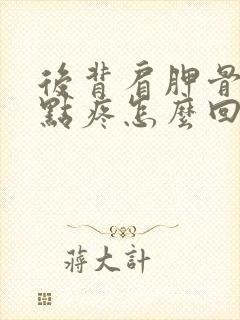 後背肩胛骨
點疼怎麼回
蔣大計